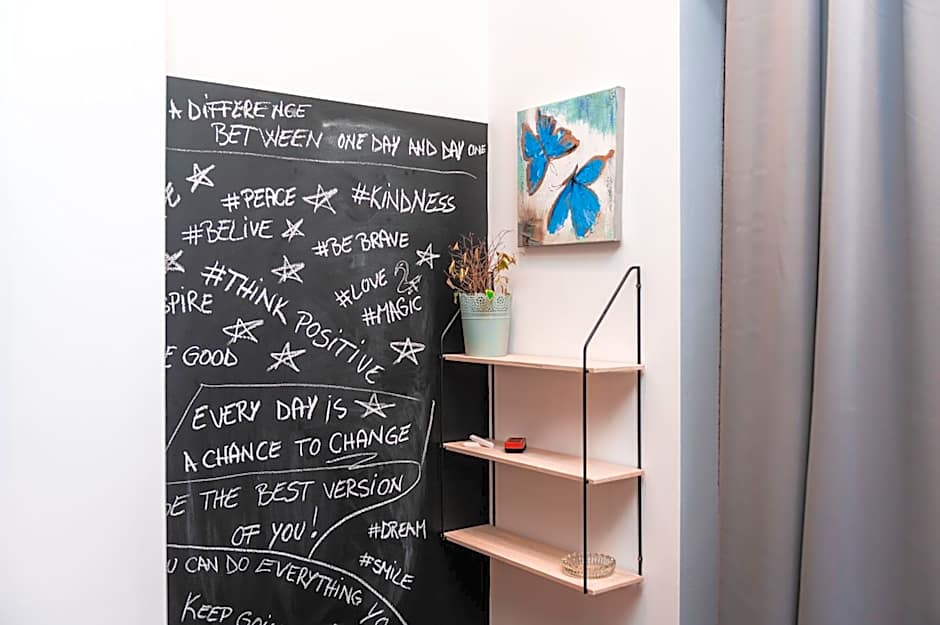 A DIFFERENCE
BETWEEN ONE DAY AND DAY ONE
#PEACE #KINDNESS
#BELIVE #BE BRAVE
#THINK POSITIVE
#LOVE
#MAGIC
SPIRE
GOOD
EVERY DAY IS
A CHANCE TO CHANGE
BE THE BEST VERSION
OF YOU!
#DREAM
#SMILE
U CAN DO EVERYTHING
KEEP